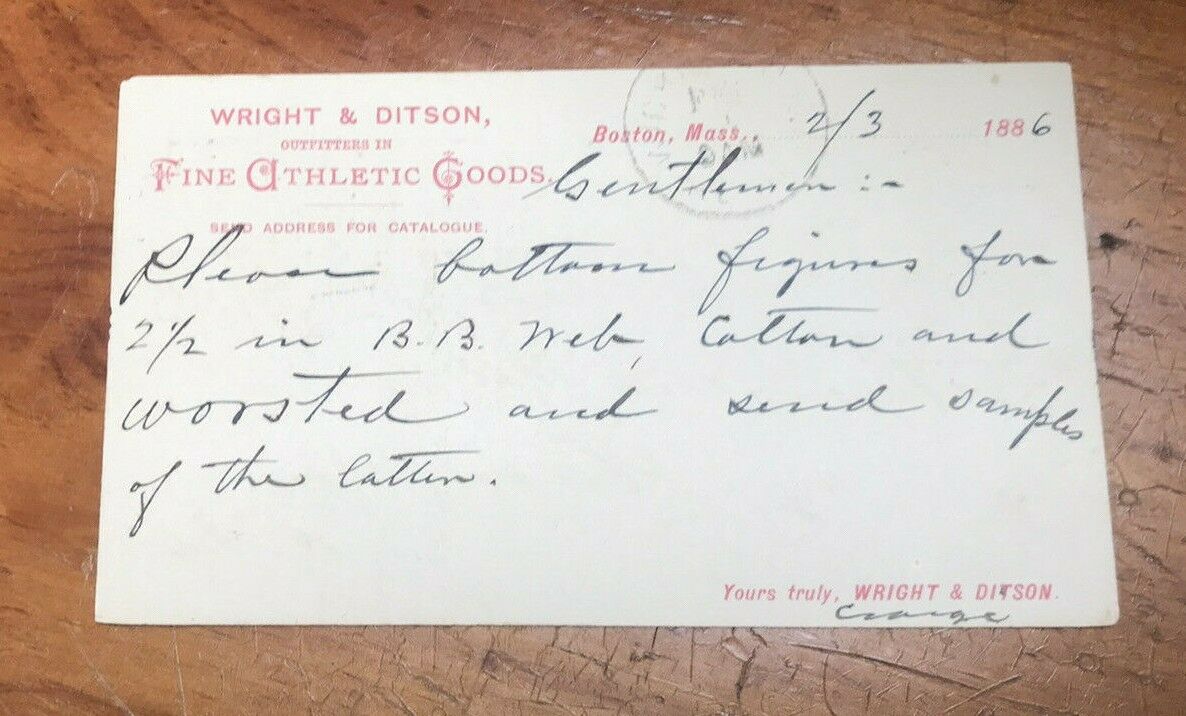 WRIGHT & DITSON,
OUTFITTERS IN
FINE ATHLETIC GOODS.
SEND ADDRESS FOR CATALOGUE.
Boston, Mass., 2/3 1886
Gentlemen :-
Please bottom figures for
2 1/2 in B.B. Web, Cotton and
worsted and send samples
of the latter.
Yours truly, WRIGHT & DITSON.